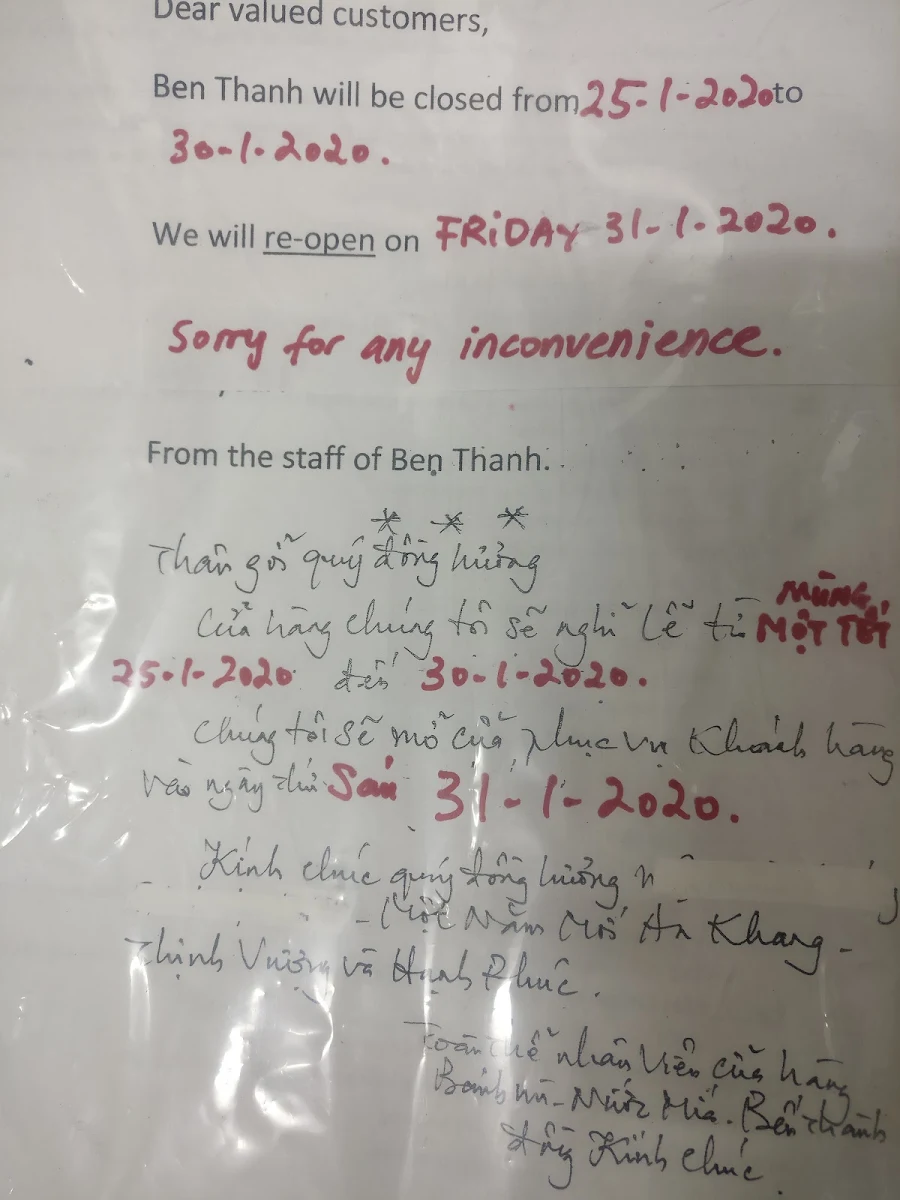 Dear valued customers,
Ben Thanh will be closed from 25-1-2020 to
30-1-2020.
We will re-open on FRiDAY 31-1-2020.
Sorry for any inconvenience.
From the staff of Ben Thanh.
* * *
Thân gởi quý đồng hương
Cửa hàng chúng tôi sẽ nghỉ lễ từ MÙNG
MỘT TẾT
25-1-2020 đến 30-1-2020.
Chúng tôi sẽ mở cửa phục vụ Khách hàng
vào ngày thứ Sáu 31-1-2020.
Kính chúc quý đồng hương
- Một Năm Mới An Khang -
Thịnh Vượng và Hạnh Phúc.
Toàn thể nhân viên cửa hàng
Bánh mì - Nước Mía. Bến Thành
đồng Kính chúc